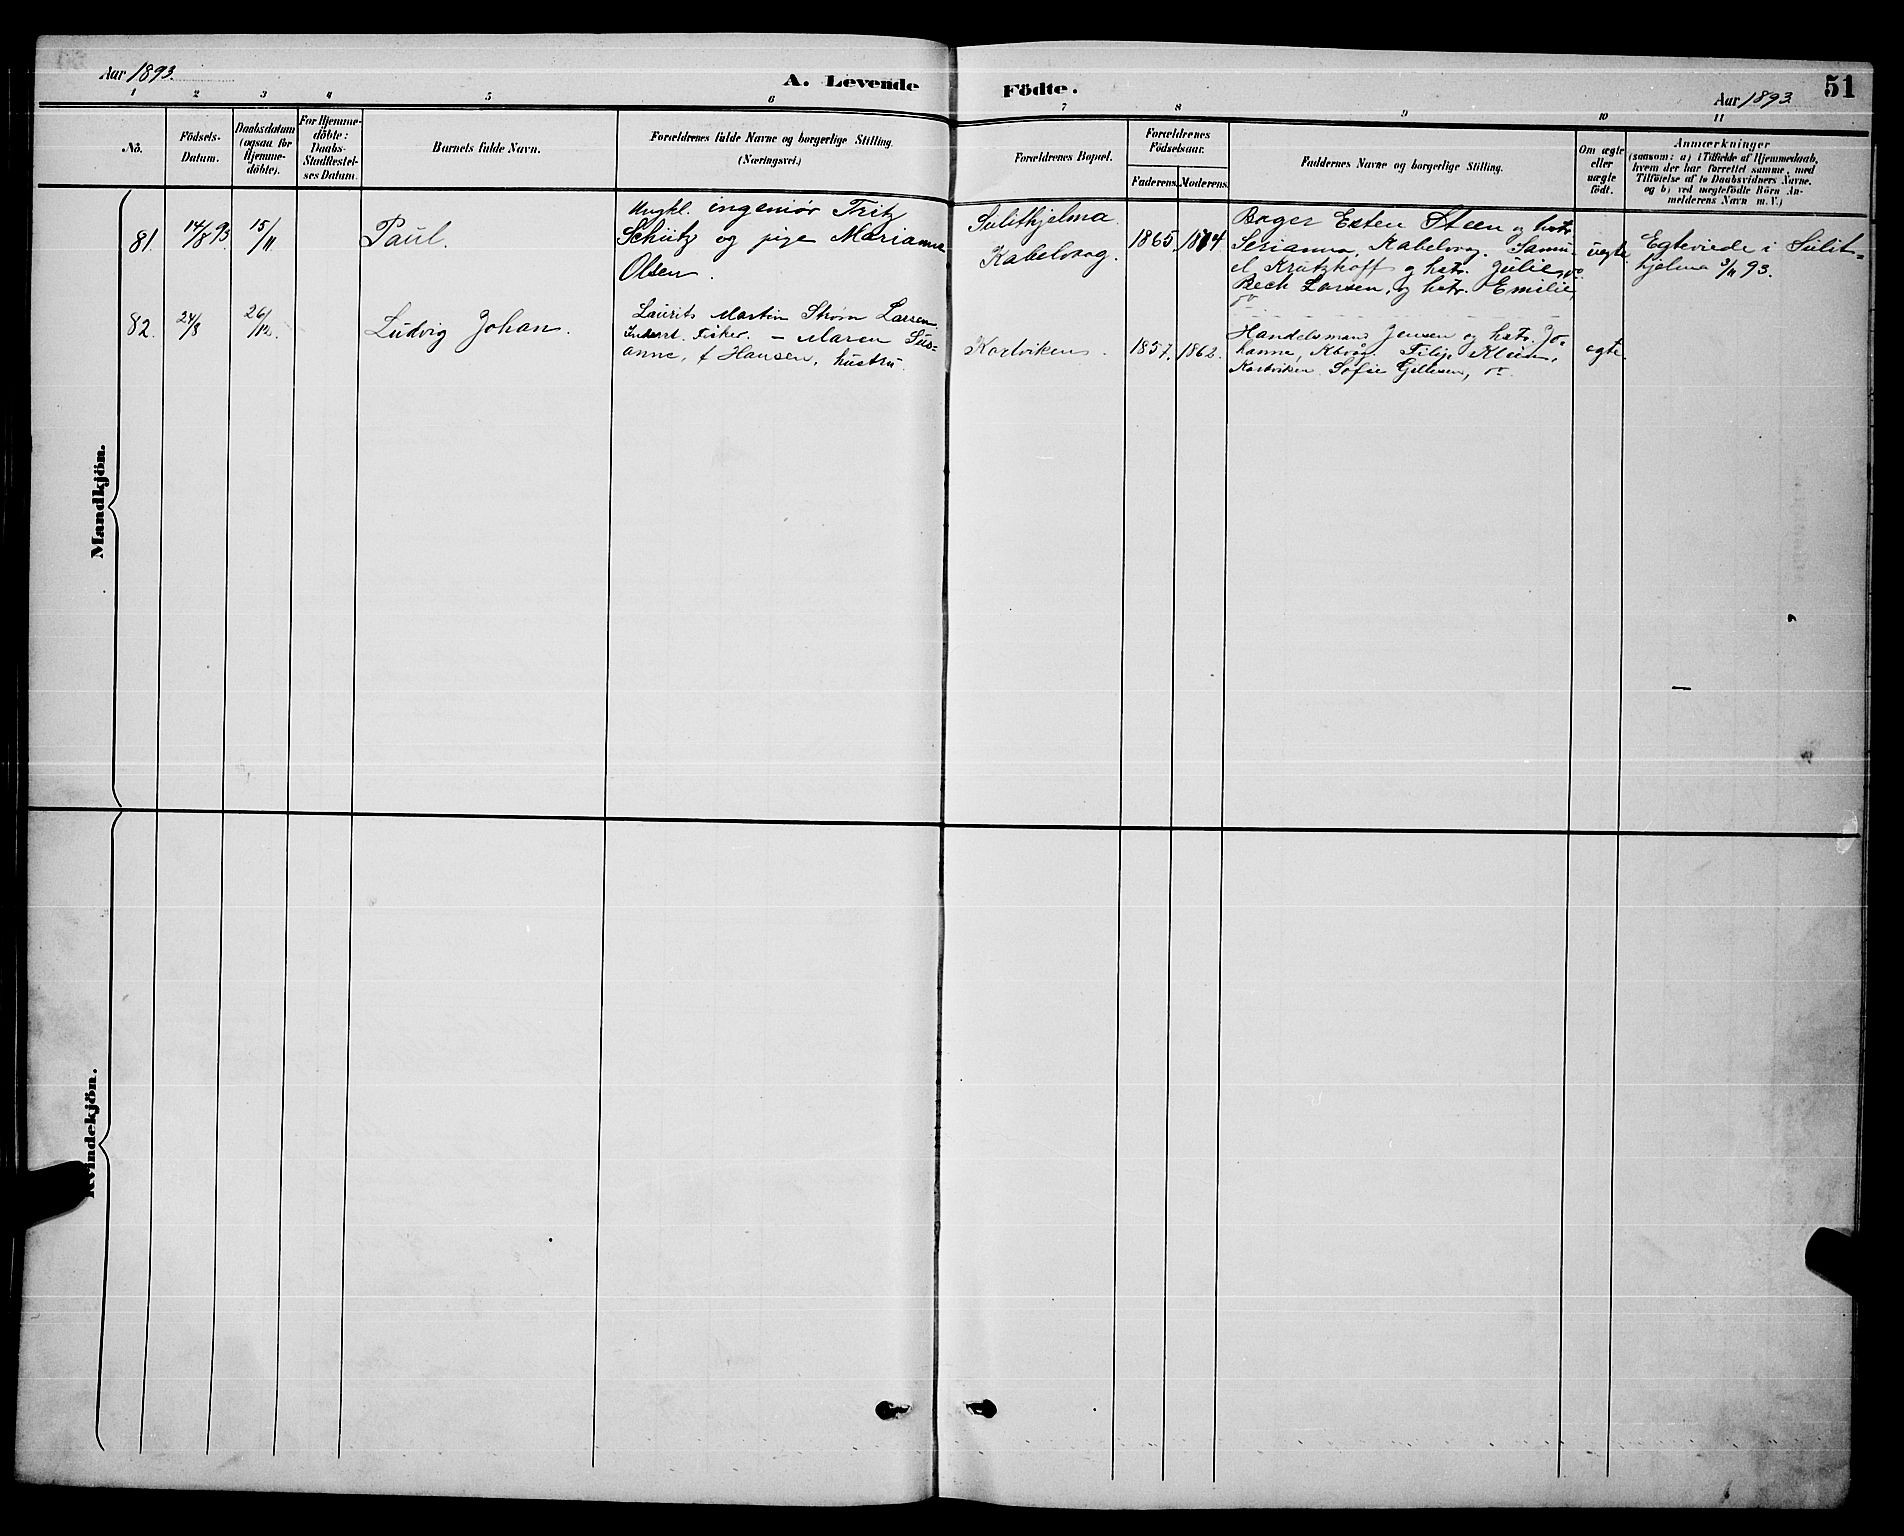 Aar 1893.
A. Levende Födte.
Aar 1893.
51
1 2 3 4 5 6 7 8 9 10 11
No.
Födsels-
Datum.
Daabsdatum
(ogsaa for
Hjemme-
döbte).
For Hjemme-
döbte:
Daabs-
Stadfæstel-
ses Datum.
Barnets fulde Navn.
Forældrenes fulde Navne og borgerlige Stilling.
(Næringsvei.)
Forældrenes Bopæl.
Forældrenes
Födselsaar.
Faderens. Moderens.
Faddernes Navne og borgerlige Stilling.
Om ægte
eller
uægte
födt.
Anmærkninger
(saasom: a) i Tilfælde af Hjemmedaab,
hvem der har forrettet samme, med
Tilföielse af to Daabsvidners Navne,
og b) ved uægtefödte Börn An-
melderens Navn m. V.)
Mandkjön.
81.
14/8 93.
15/11
Paul.
Ungkl. ingeniör Fritz
Schütz og pige Marianne
Olsen.
Sulithjelma.
Kabelvaag.
1865. 1874.
Bager Esten Steen og hstr.
Serianna, Kabelvog. Samu-
el Krutzkoff og hstr. Julie, do
Bech Larsen, og hstr. Emilie,
do
uegte.
Egteviede i Sulit-
hjelma 3/11 93.
82.
24/8
26/12.
Ludvig Johan.
Laurits Martin Strøm Larsen.
Inderst. Fisker. – Maren Sus-
anne, f. Hansen, hustru.
Kortviken.
1857. 1862.
Handelsmand Jensen og hstr. Jo-
hanne, Kbvåg. Filip Klein,
Kortviken. Sofie Gellesen, do.
egte.
Kvindekjön.